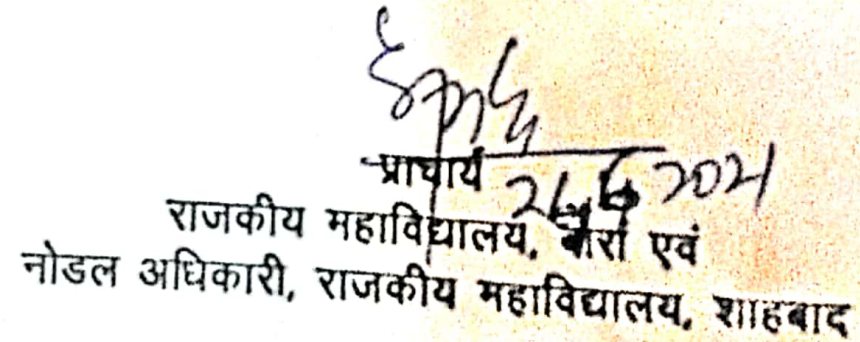 प्राचार्य
2021
राजकीय महाविद्यालय, बारां एवं
नोडल अधिकारी, राजकीय महाविद्यालय, शाहबाद